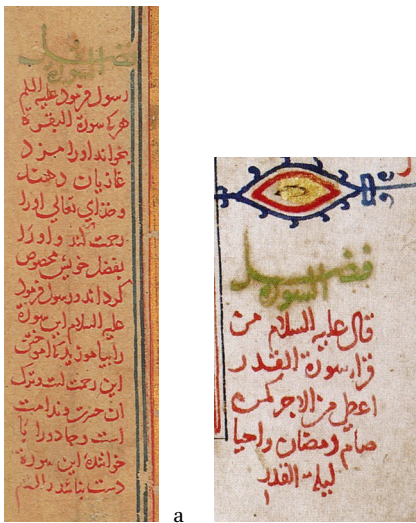 فضيل
السورة
رسول فرمود علیه السلم
هرکه سورة البقرة
بخواند اورا مزد
غازیان دهند
و خدای تعالی اورا
رحمت کند و اورا
بفضل خویش مخصوص
کرداند و رسول فرمود
علیه السلام این سورة
را بیاموزید که اموختن
این رحمت است و ترک
ان حسرت و ندامت
است و جادورا با
خواننده این سورة
دست نباشد و السلم
a
فضيل
السورة
قال علیه السلام من
قرا سورة القدر
اعطی من الاجر کمن
صام رمضان و احیا
لیلة القدر